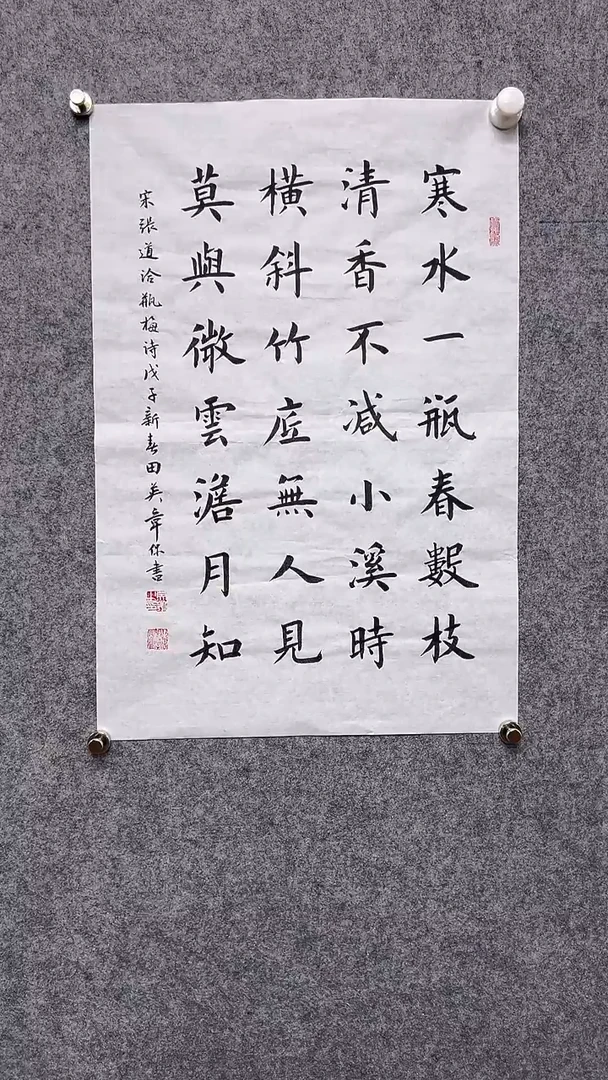 寒水一瓶春數枝
清香不減小溪時
橫斜竹底無人見
莫與微雲澹月知
宋張道洽瓶梅诗戊子新春田英章作書